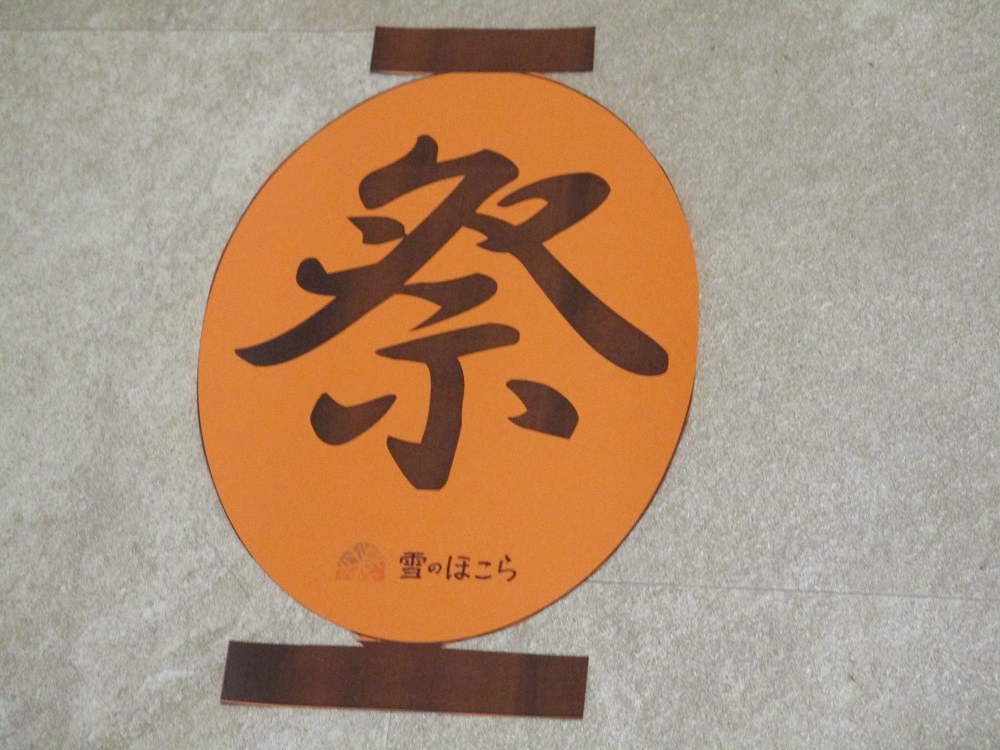 祭
雪のほこら